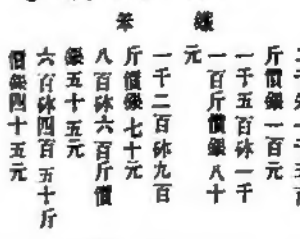 一千五百
斤價銀一百元
一千五百砵一千
一百斤價銀八十
元
一千二百砵九百
斤價銀七十元
八百砵六百斤價
銀五十五元
六百砵四百五十斤
價銀四十五元